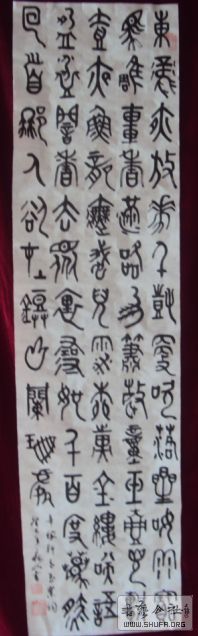 東風夜放花千樹更吹落星如雨寶
馬雕車香滿路鳳簫聲動玉壺光轉
壹夜魚龍舞蛾兒雪柳黃金縷笑語
盈盈暗香去眾裏尋他千百度驀然
回首那人卻在燈火闌珊處
WWW.SHUFA.ORG